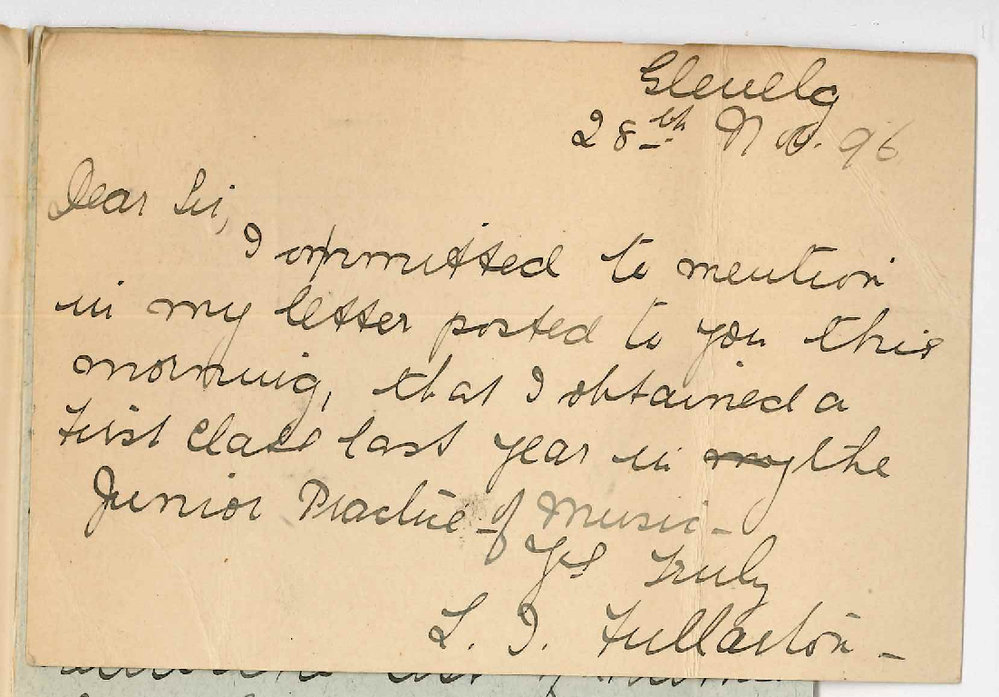 Glenelg
28th Nov. 96
Dear Sir,
I ommitted to mention
in my letter posted to you this
morning, that I obtained a
First Class last year in my the
Junior Practice of Music -
Yrs truly
L. I. Fullarton -